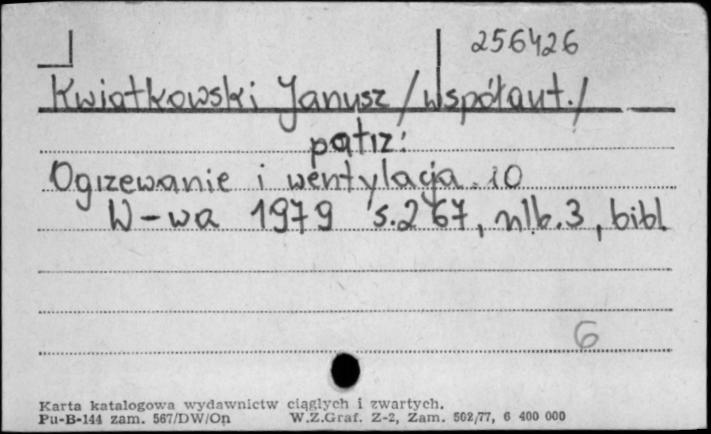 256426
Kwiatkowski Janusz /współaut./
patrz:
Ogrzewanie i wentylacja. 10
W-wa 1979 s.267, nlb.3, bibl
6
Karta katalogowa wydawnictw ciągłych i zwartych.
Pu-B-144 zam. 567/DW/Op W.Z.Graf. Z-2, Zam. 502/77, 6 400 000